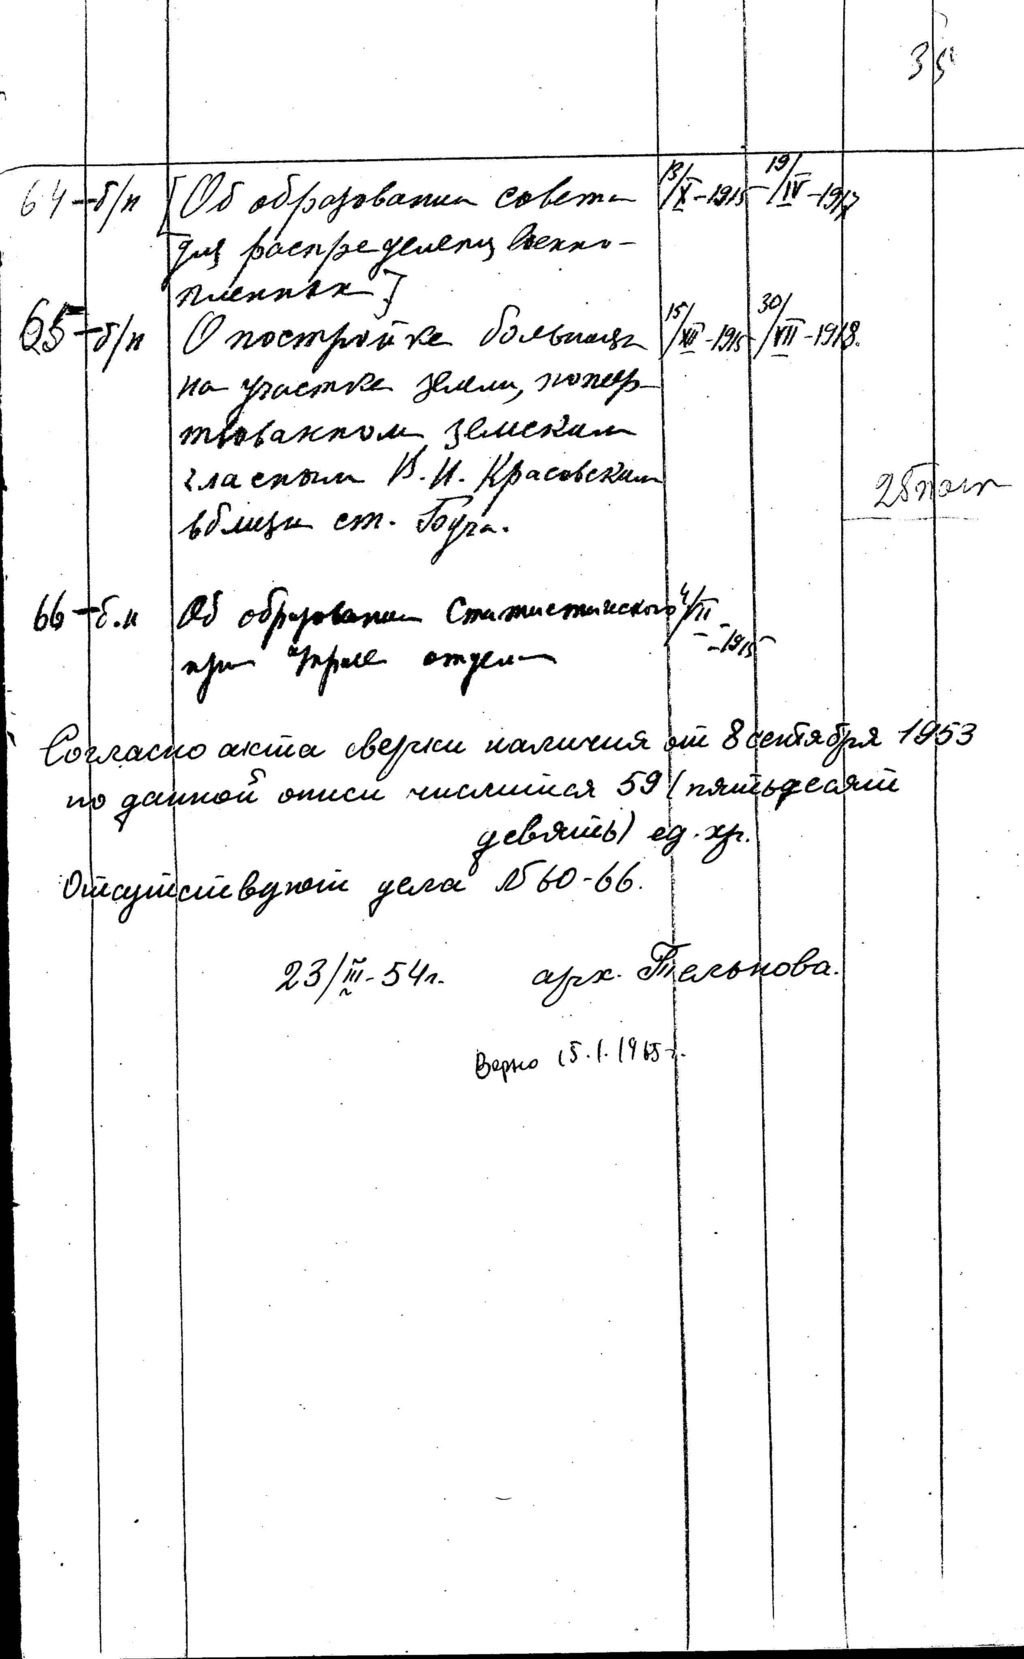 35
64 – б/н [Об образовании совета 13/X – 1915 19/IV – 1917
для распределения военно-
пленных]
65 – б/н О постройке больницы 15/XII – 1915 30/VII – 1918.
на участке земли, пожер-
твованном земским
гласным В. И. Красовским
вблизи ст. Буча.
66 – б.н Об образовании Статистического 4/VII
при Управе отдела – 1915
Согласно акта сверки наличия от 8 сентября 1953
по данной описи числится 59 (пятьдесят
девять) ед. хр.
Отсутствуют дела № 60-66.
23/III-54г. арх. Телькова.
Верно 15.1.1965 г.